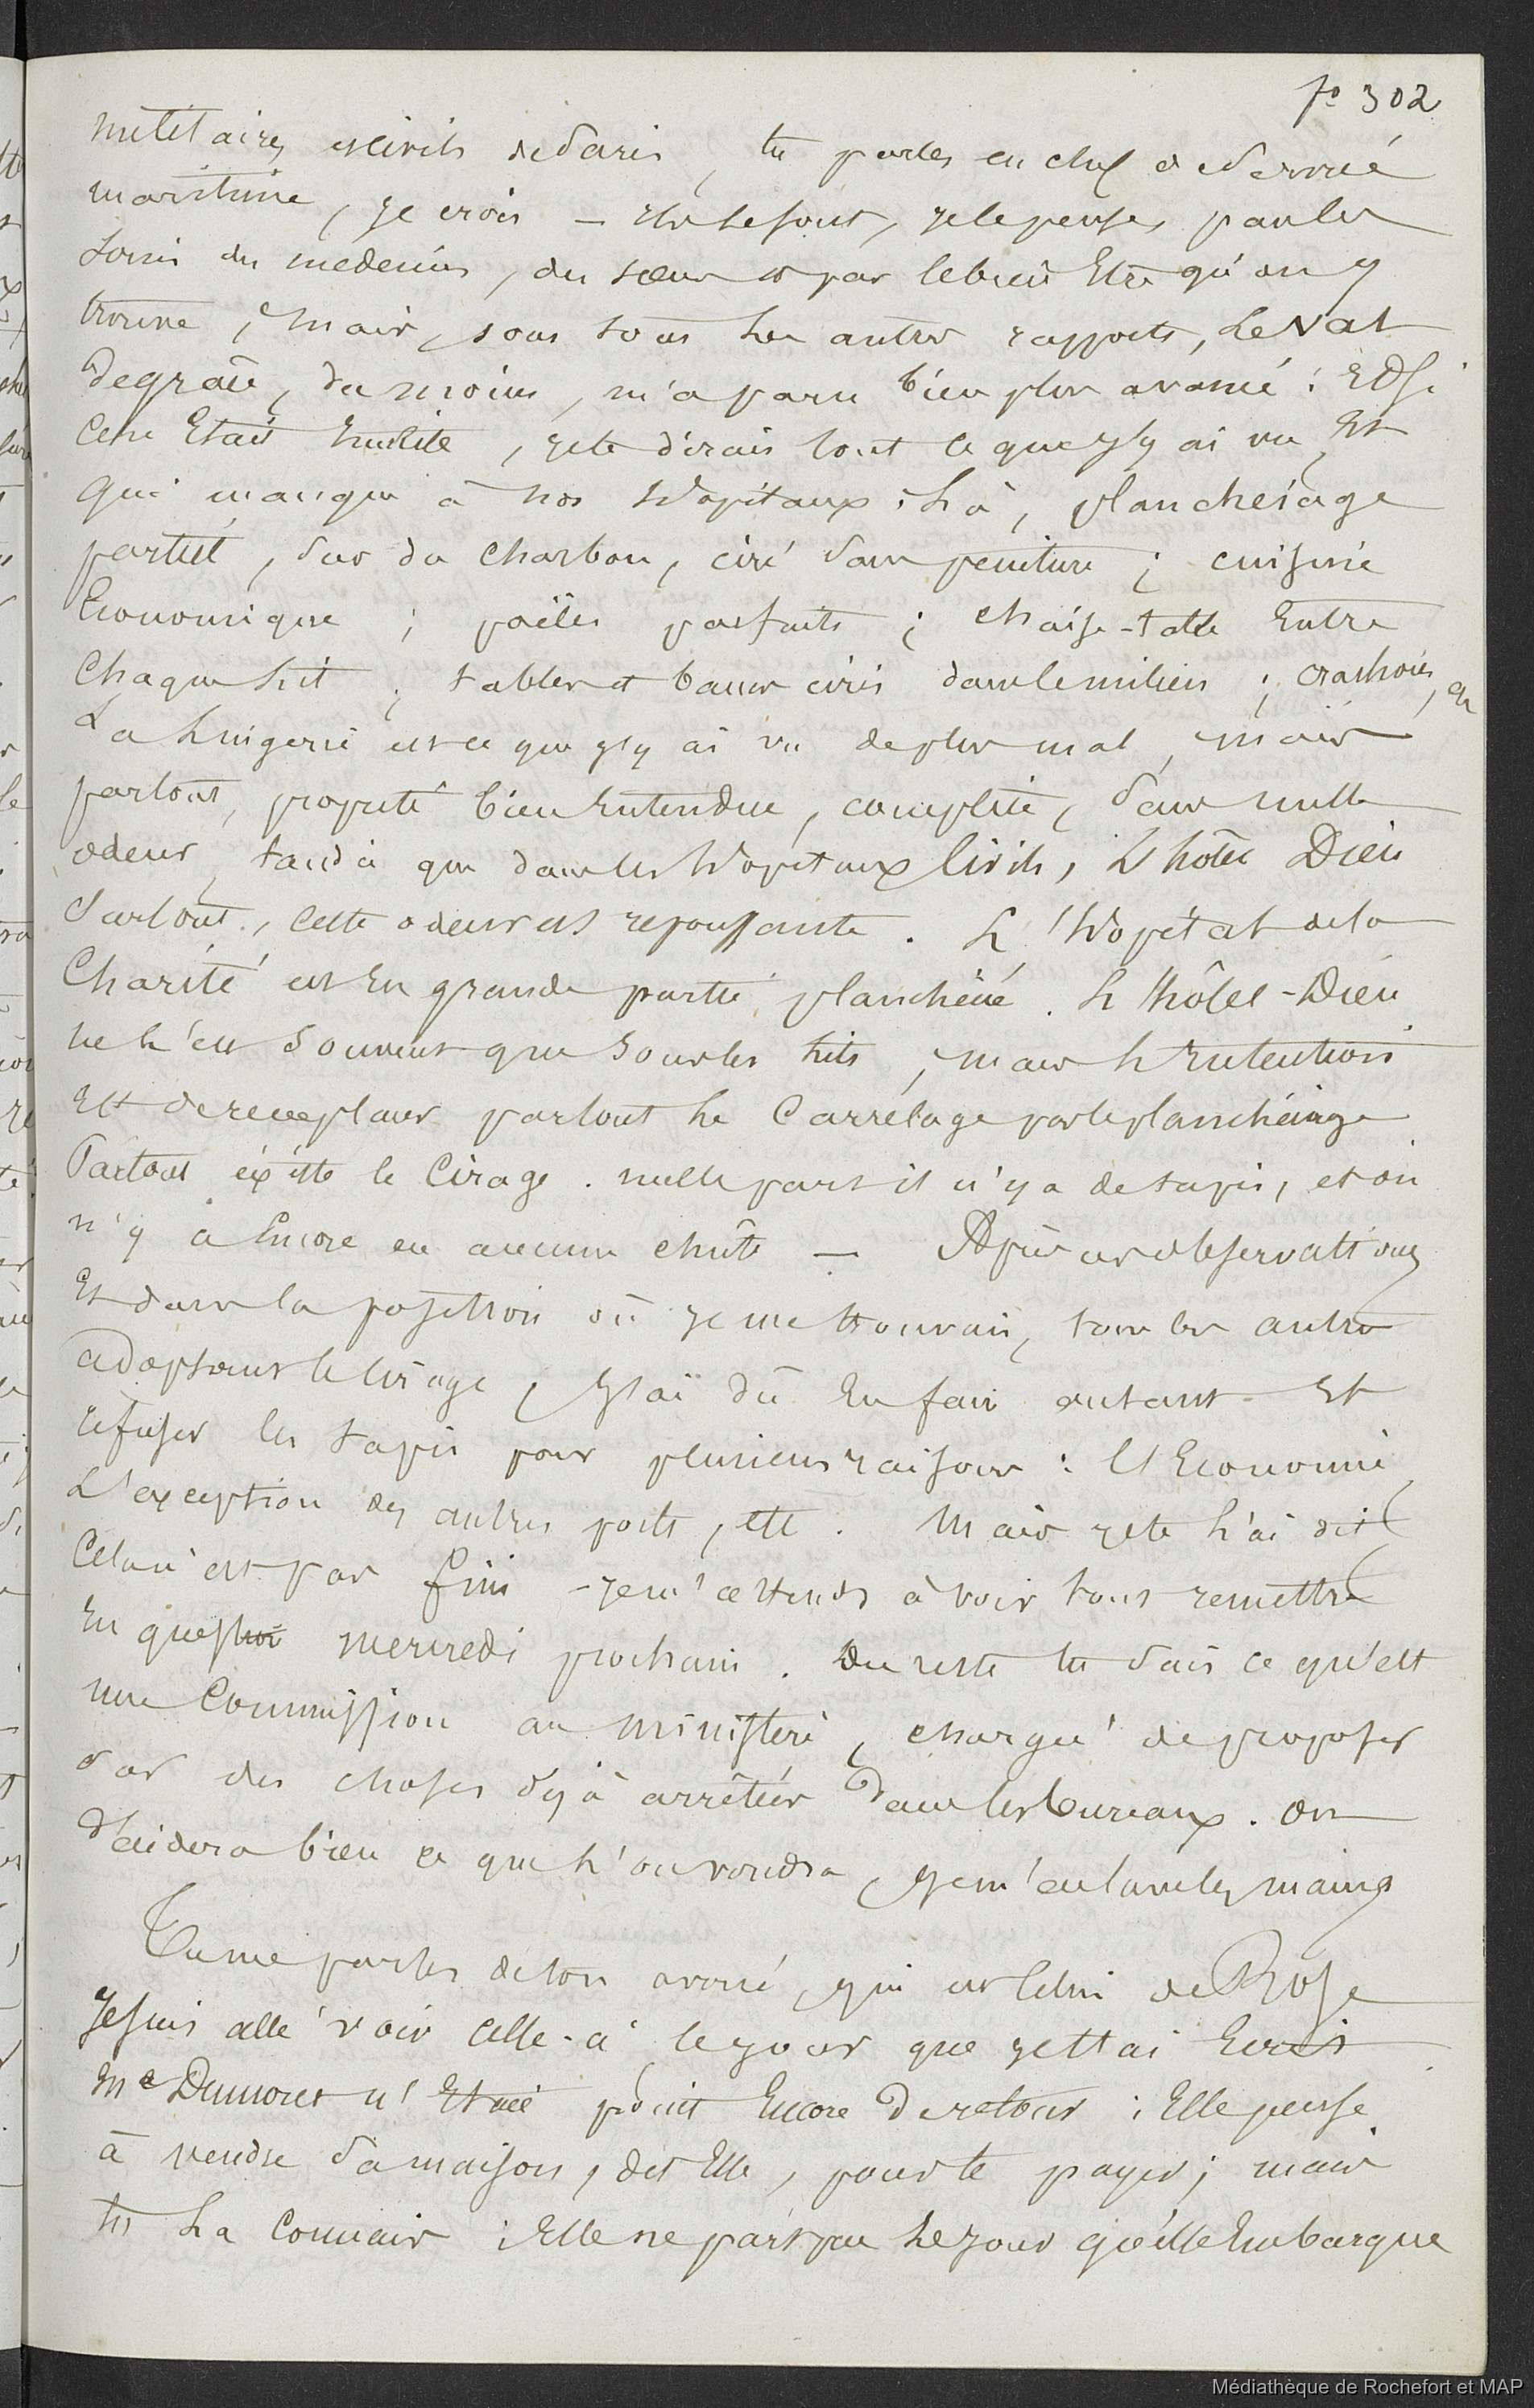 fo 302
militaires et civils de Paris, tu parles en chef de service
maritime, je crois — Ils le sont, je le pense, par les
soins des médecins, des sœurs & par le bien être qu'on y
trouve, mais, sous tous les autres rapports, le Val
de grace, du moins, m'a paru bien plus avancé : Et Si
cela Etait Inutile, je te dirais tout ce que j'y ai vu, Et
qui manque à nos hopitaux : là, plancheiage
partiel, sur du charbon, ciré sans peinture ; cuisine
Economique ; poëles parfaits ; chaise-table Entre
chaque lit ; tables et bancs cirés dans le milieu ; crachoirs, &
La lingerie est ce que j'y ai vu de plus mal, mais
partout, propreté bien Entendue, complète, sans nulle
odeur, tandis que dans les hopitaux Civils, L'hôtel Dieu
Surtout, cette odeur est repoussante. L'hopital de la
Charité est En grande partie planchéié. L'hôtel-Dieu
ne l'est souvent que sous les lits, mais l'Intention
Est de remplacer partout le Carrelage par le planchéiage
Partout éxiste le Cirage. nulle part il n'y a de tapis, et on
n'y a Encore eu aucune chûte — Après ces observations
Et dans la position où je me trouvais, tous les autres
adoptant le cirage, j'ai dû En faire autant Et
refuser les tapis pour plusieurs raisons : l'Economie,
L'exception des autres ports, etc. Mais je te l'ai dit
Cela n'est pas fini - je m'attends à voir tout remettre
En question mercredi prochain. Du reste tu sais ce qu'est
une Commission au ministère, chargée de proposer
sur des choses déjà arrêtées dans les bureaux. On
décidera bien ce que l'on voudra, je m'en lave les mains
Tu me parles de ton avoué, qui est celui de Rose
Je suis allé voir celle-ci le jour que je t'ai Ecrit
Me Dumoret n'Etait point Encore de retour ; Elle pense
à vendre sa maison, dit Elle, pour te payer ; mais
tu la connais : Elle ne part pas le jour qu'elle Embarque
Médiathèque de Rochefort et MAP